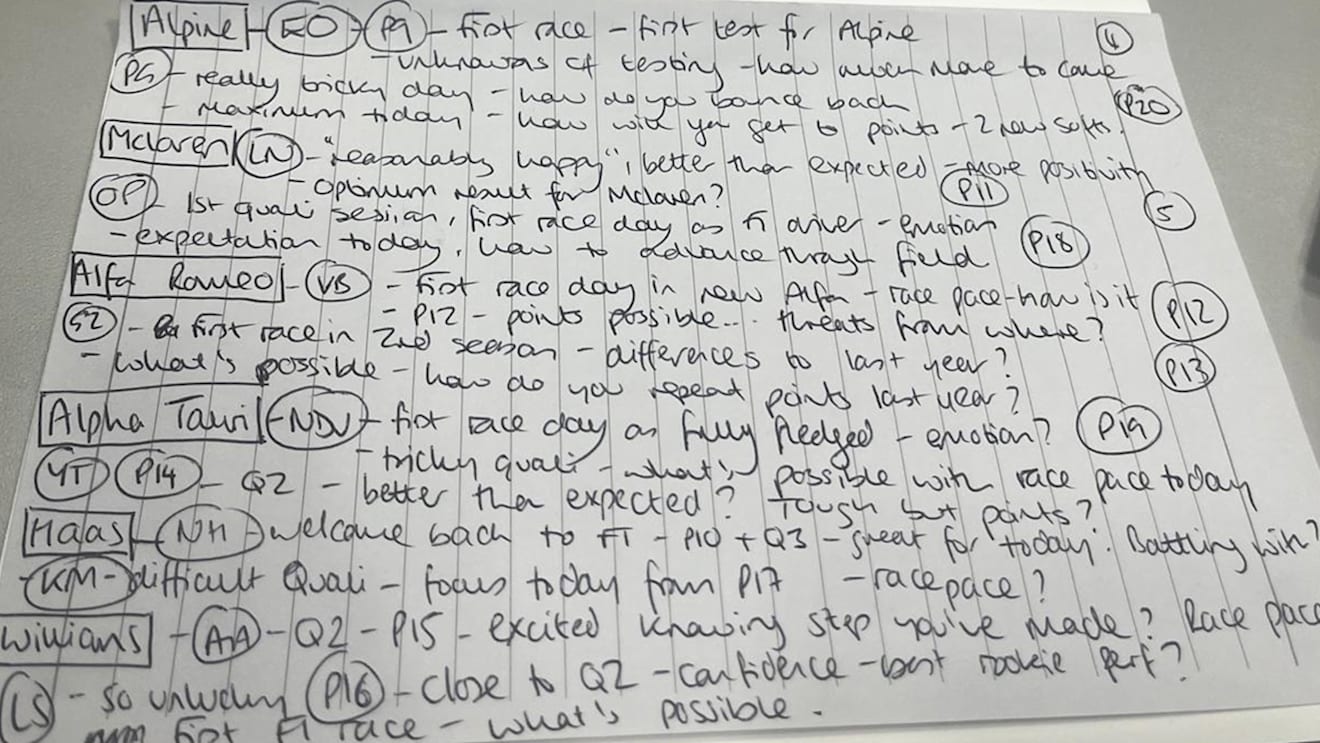 Alpine - EO - P9 - First race - first test for Alpine ④
- unknowns of testing - how much more to come
PG - really tricky day - how do you bounce back P20
- Maximum today - how will you get to points - 2 new softs.
Mclaren LN - "reasonably happy", better than expected - more positivity
- Optimum result for Mclaren? P11
OP - 1st quali session, first race day as F1 driver - emotion 5
- expectation today, how to advance through field P18
Alfa Romeo - VB - First race day in new Alfa - race pace - how is it P12
- P12 - points possible... threats from where?
GZ - First race in 2nd season - differences to last year? P13
- What's possible - how do you repeat points last year?
Alpha Tauri - NDV - first race day as fully fledged - emotion? P19
- tricky quali - what's possible with race pace today
YT P14 - Q2 - better than expected? Tough but points?
Haas - NH - welcome back to F1 - P10 + Q3 - great for today. Battling with?
- KM - difficult Quali - focus today from P17 - race pace?
Williams - AA - Q2 - P15 - excited knowing step you've made? Race pace
LS - so unlucky P16 - close to Q2 - confidence - best rookie perf?
First F1 race - what's possible.